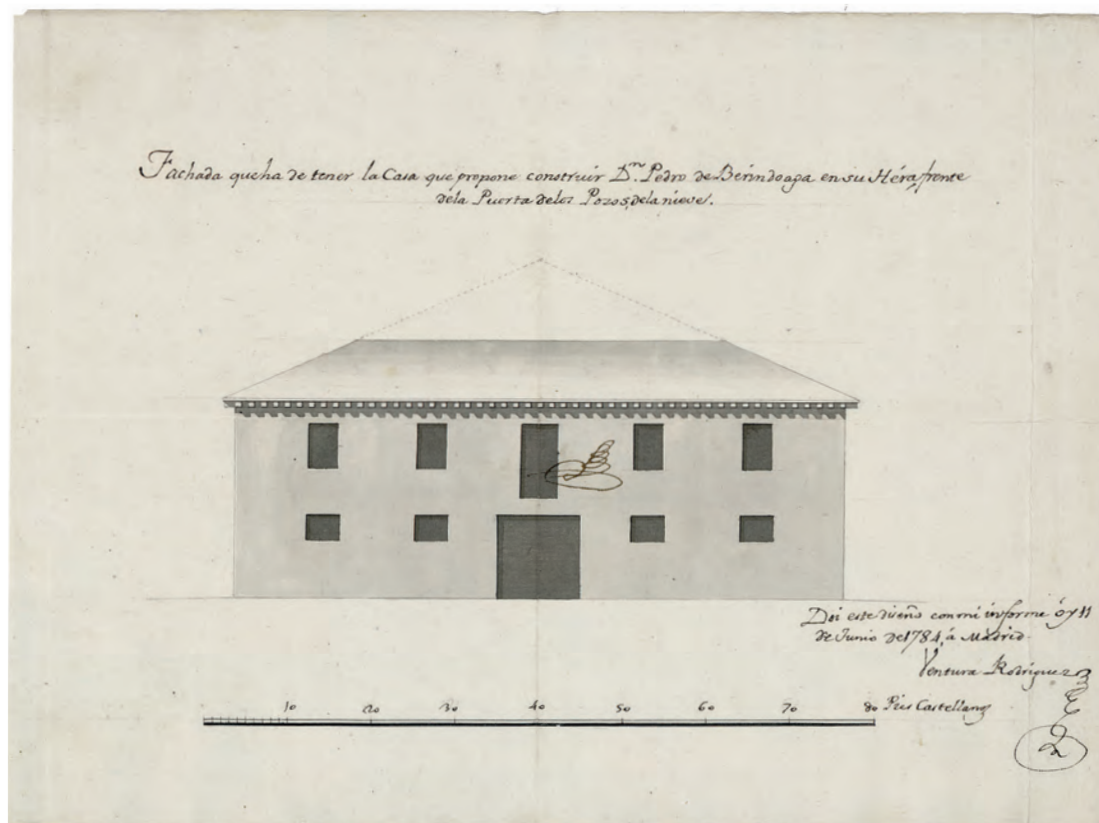 Fachada que ha de tener la Casa que propone construir D.ⁿ Pedro de Berindoaga en su Héra, frente
de la Puerta de los Pozos, de la nieve.
Doi este diseño con mi informe óy 11
de Junio de 1784, á Madrid.
Ventura Rodriguez
10 20 30 40 50 60 70 80 Pies Castellanos